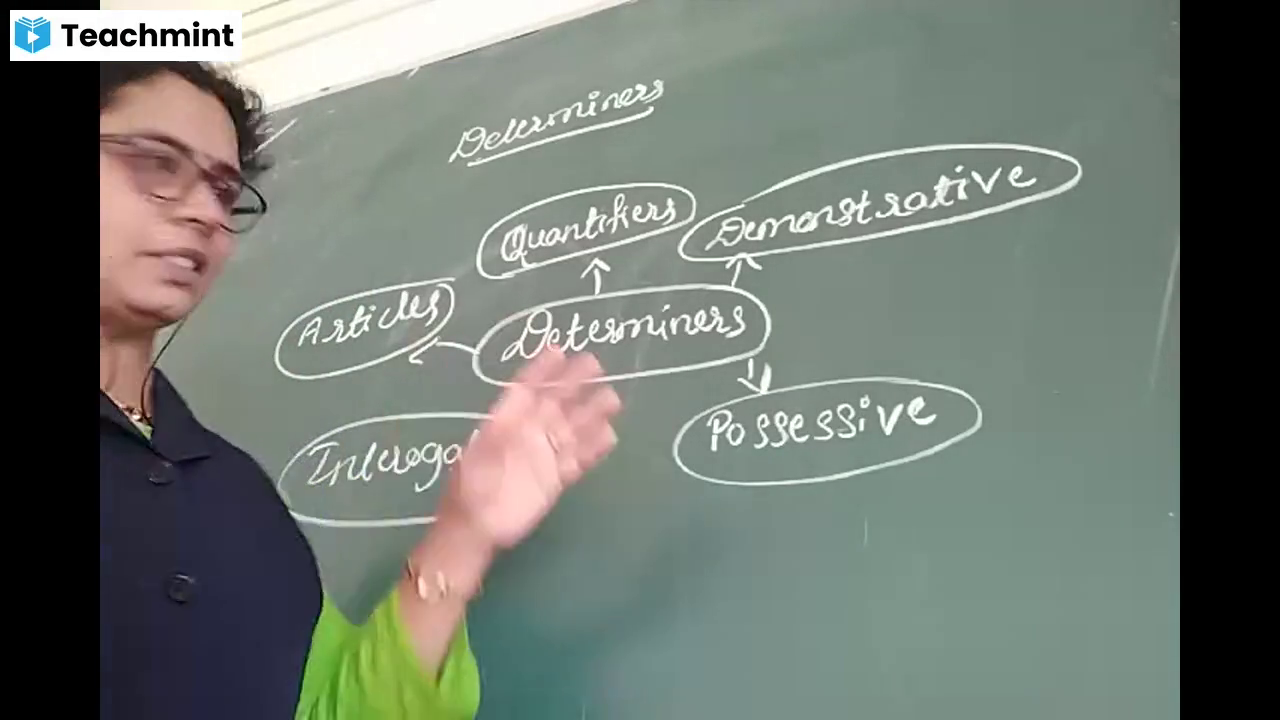 Teachmint
Determiners
Quantifiers
Demonstrative
Articles
Determiners
Possessive